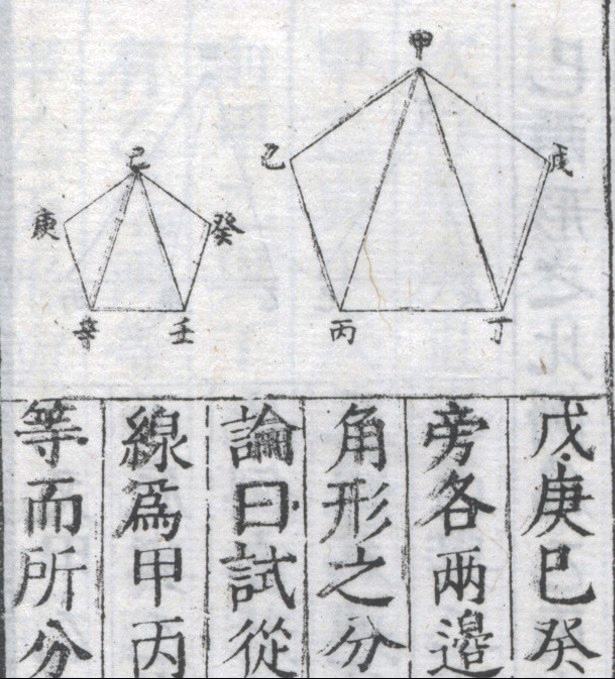 甲
乙
戊
丙
丁
己
庚
癸
辛
壬
戊庚巳癸
旁各兩邊
角形之分
論曰試從
線爲甲丙
等而所分